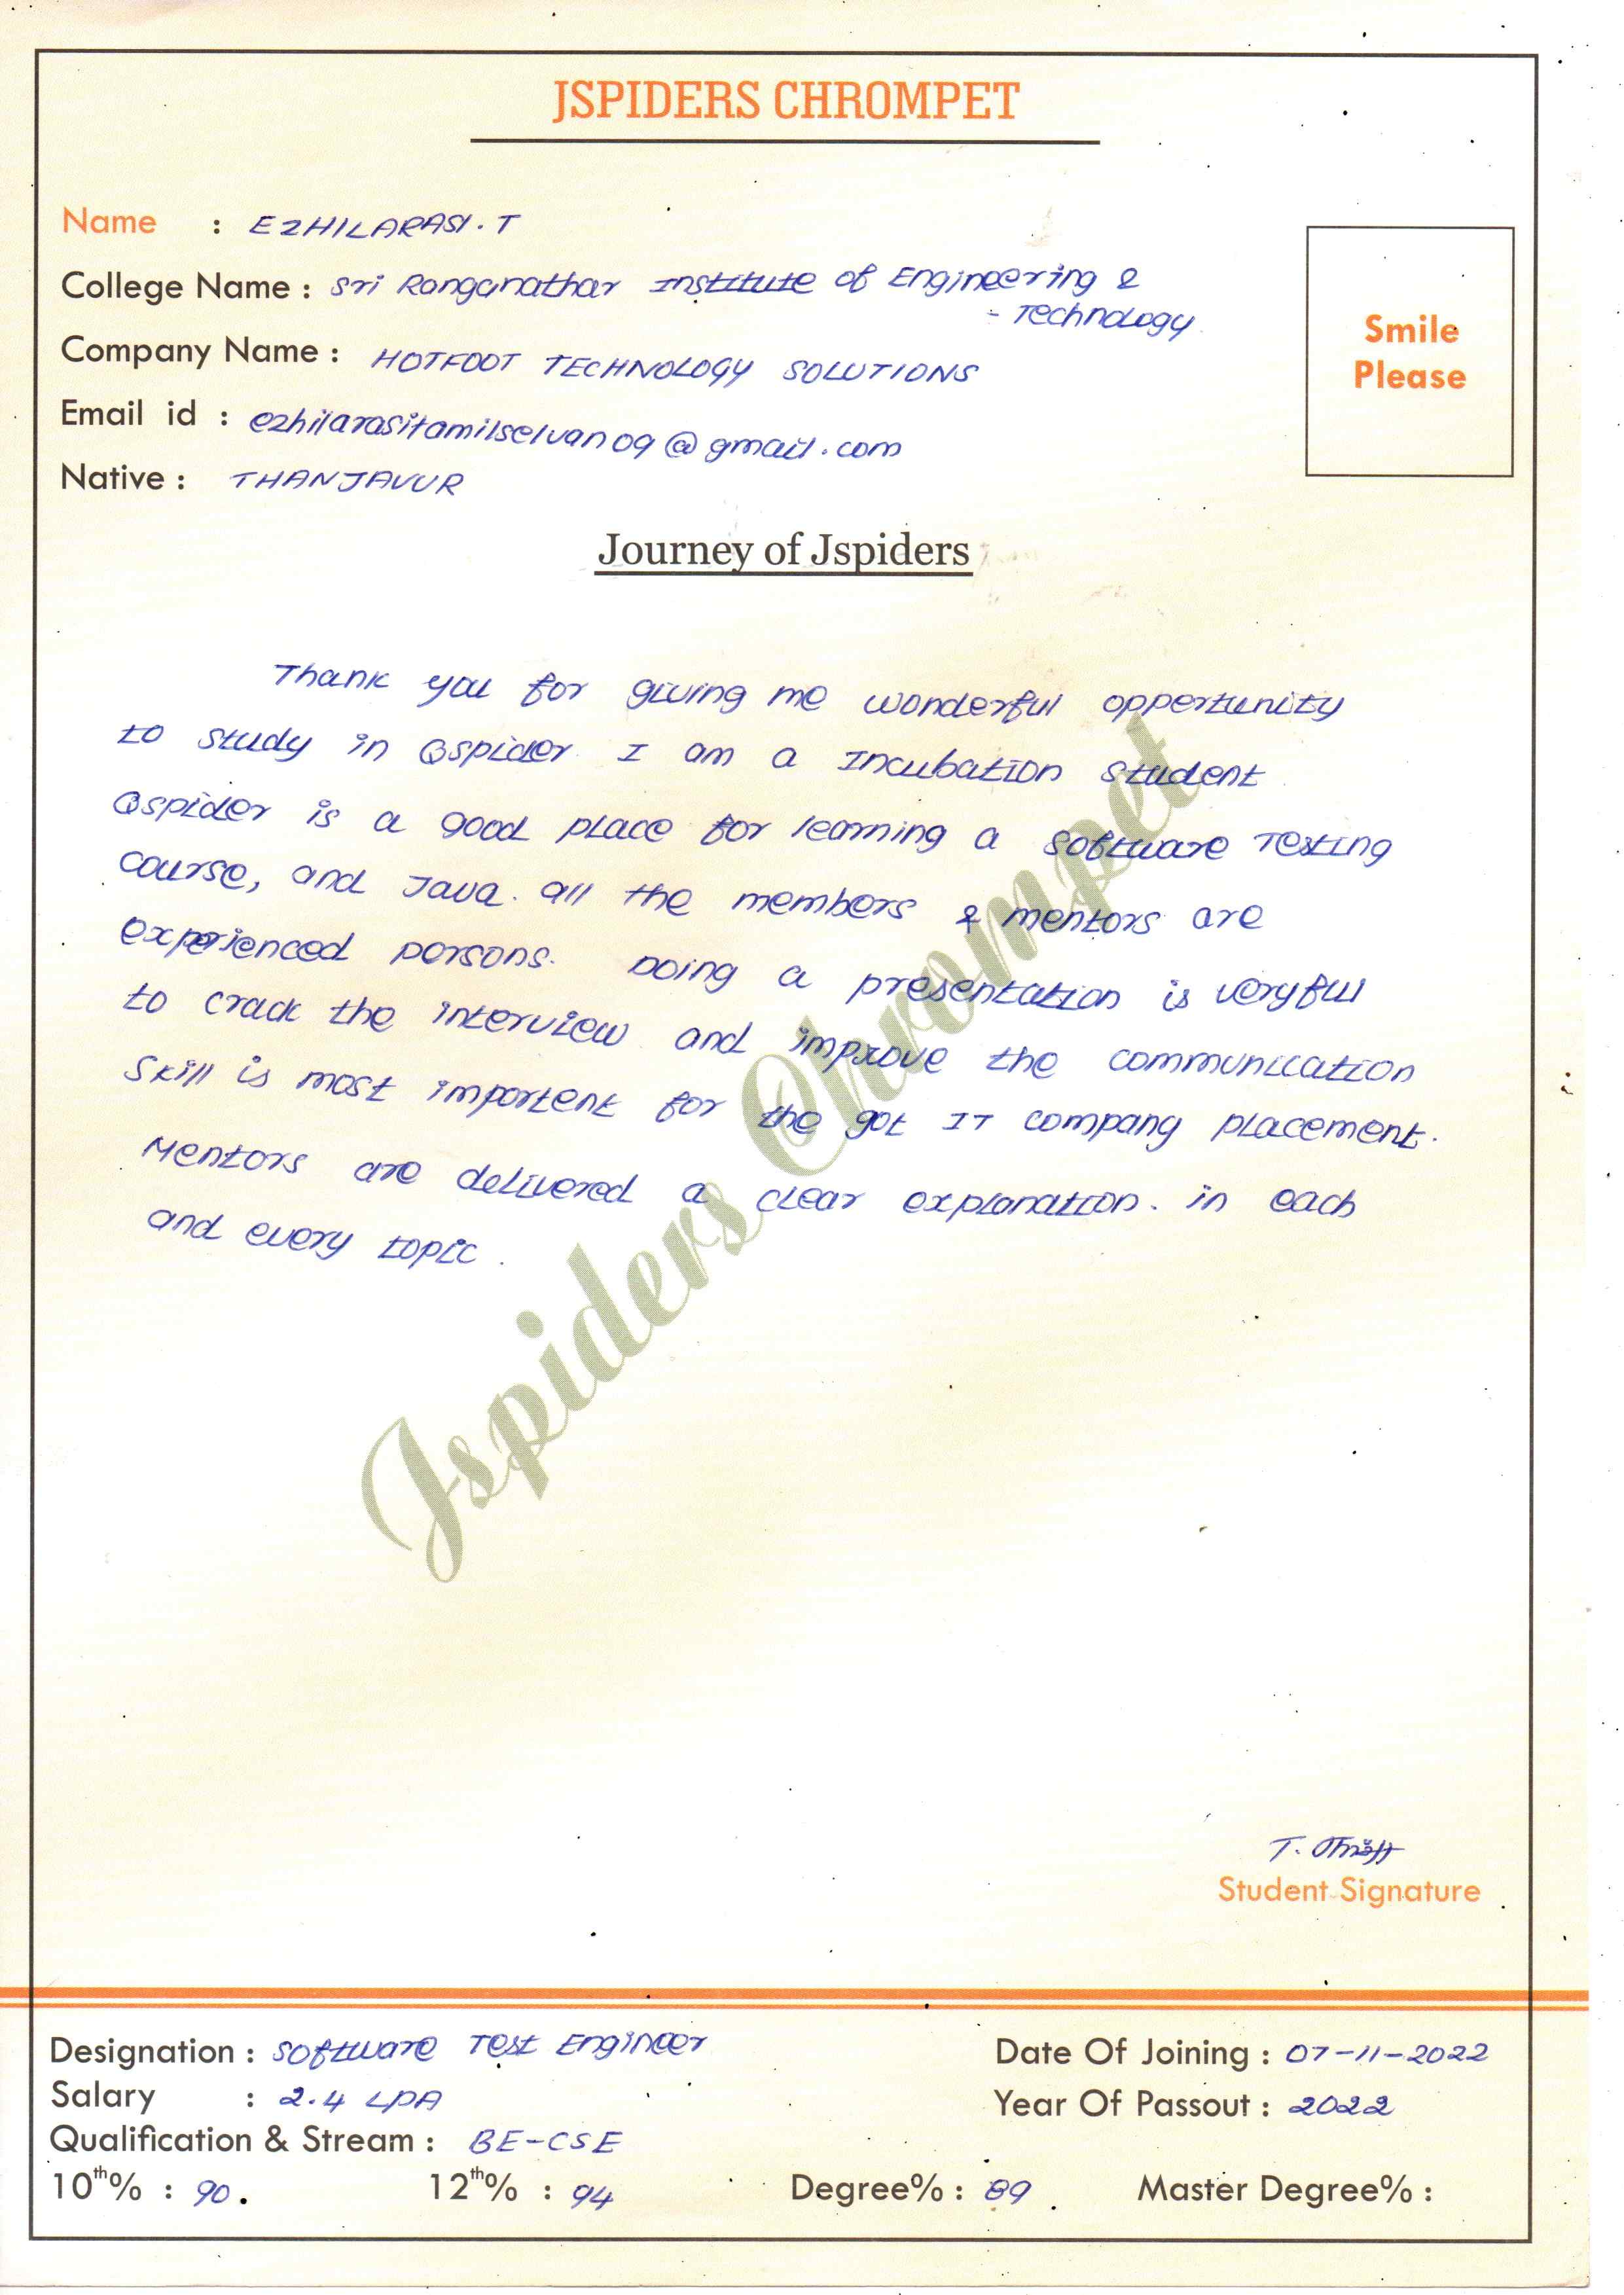 JSPIDERS CHROMPET
Name : EZHILARASI. T
College Name : Sri Ranganathar Institute of Engineering &
- Technology
Company Name : HOTFOOT TECHNOLOGY SOLUTIONS
Email id : ezhilarasitamilselvan09@gmail.com
Native : THANJAVUR
Smile
Please
Journey of Jspiders
Thank you for giving me wonderful oppertunity
to study in Qspider. I am a Incubation student
Qspider is a good place for learning a software Testing
course, and Java. all the members & mentors are
experienced persons. Doing a presentation is veryful
to crack the interview and improve the communication
skill is most importent for the got IT company placement.
Mentors are delivered a clear explanation. in each
and every topic.
Jspiders Chrompet
T.
Student Signature
Designation : Software Test Engineer
Date Of Joining : 07-11-2022
Salary : 2.4 LPA
Year Of Passout : 2022
Qualification & Stream : BE-CSE
10th% : 90. 12th% : 94 Degree% : 89. Master Degree% :